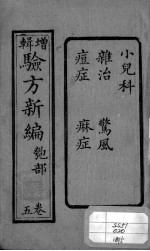 小兒科
雜治 驚風
痘症 麻症
增輯
驗方新編
匏部
卷五